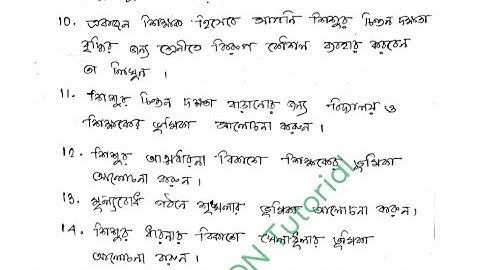 10. একজন শিক্ষক হিসেবে আপনি শিশুর চিন্তন দক্ষতা
বৃদ্ধির জন্য শ্রেণীতে কিরূপ কৌশল ব্যবহার করবেন
তা লিখুন ।
11. শিশুর চিন্তন দক্ষতা বাড়ানোর জন্য বিদ্যালয় ও
শিক্ষকের ভূমিকা আলোচনা করুন ।
12. শিশুর আত্মধারনা বিকাশে শিক্ষকের ভূমিকা
আলোচনা করুন ।
13. মূল্যবোধ গঠনে শৃঙ্খলার ভূমিকা আলোচনা করুন ।
14. শিশুর ধারনার বিকাশে খেলাধুলার ভূমিকা
আলোচনা করুন ।
ON Tutorial